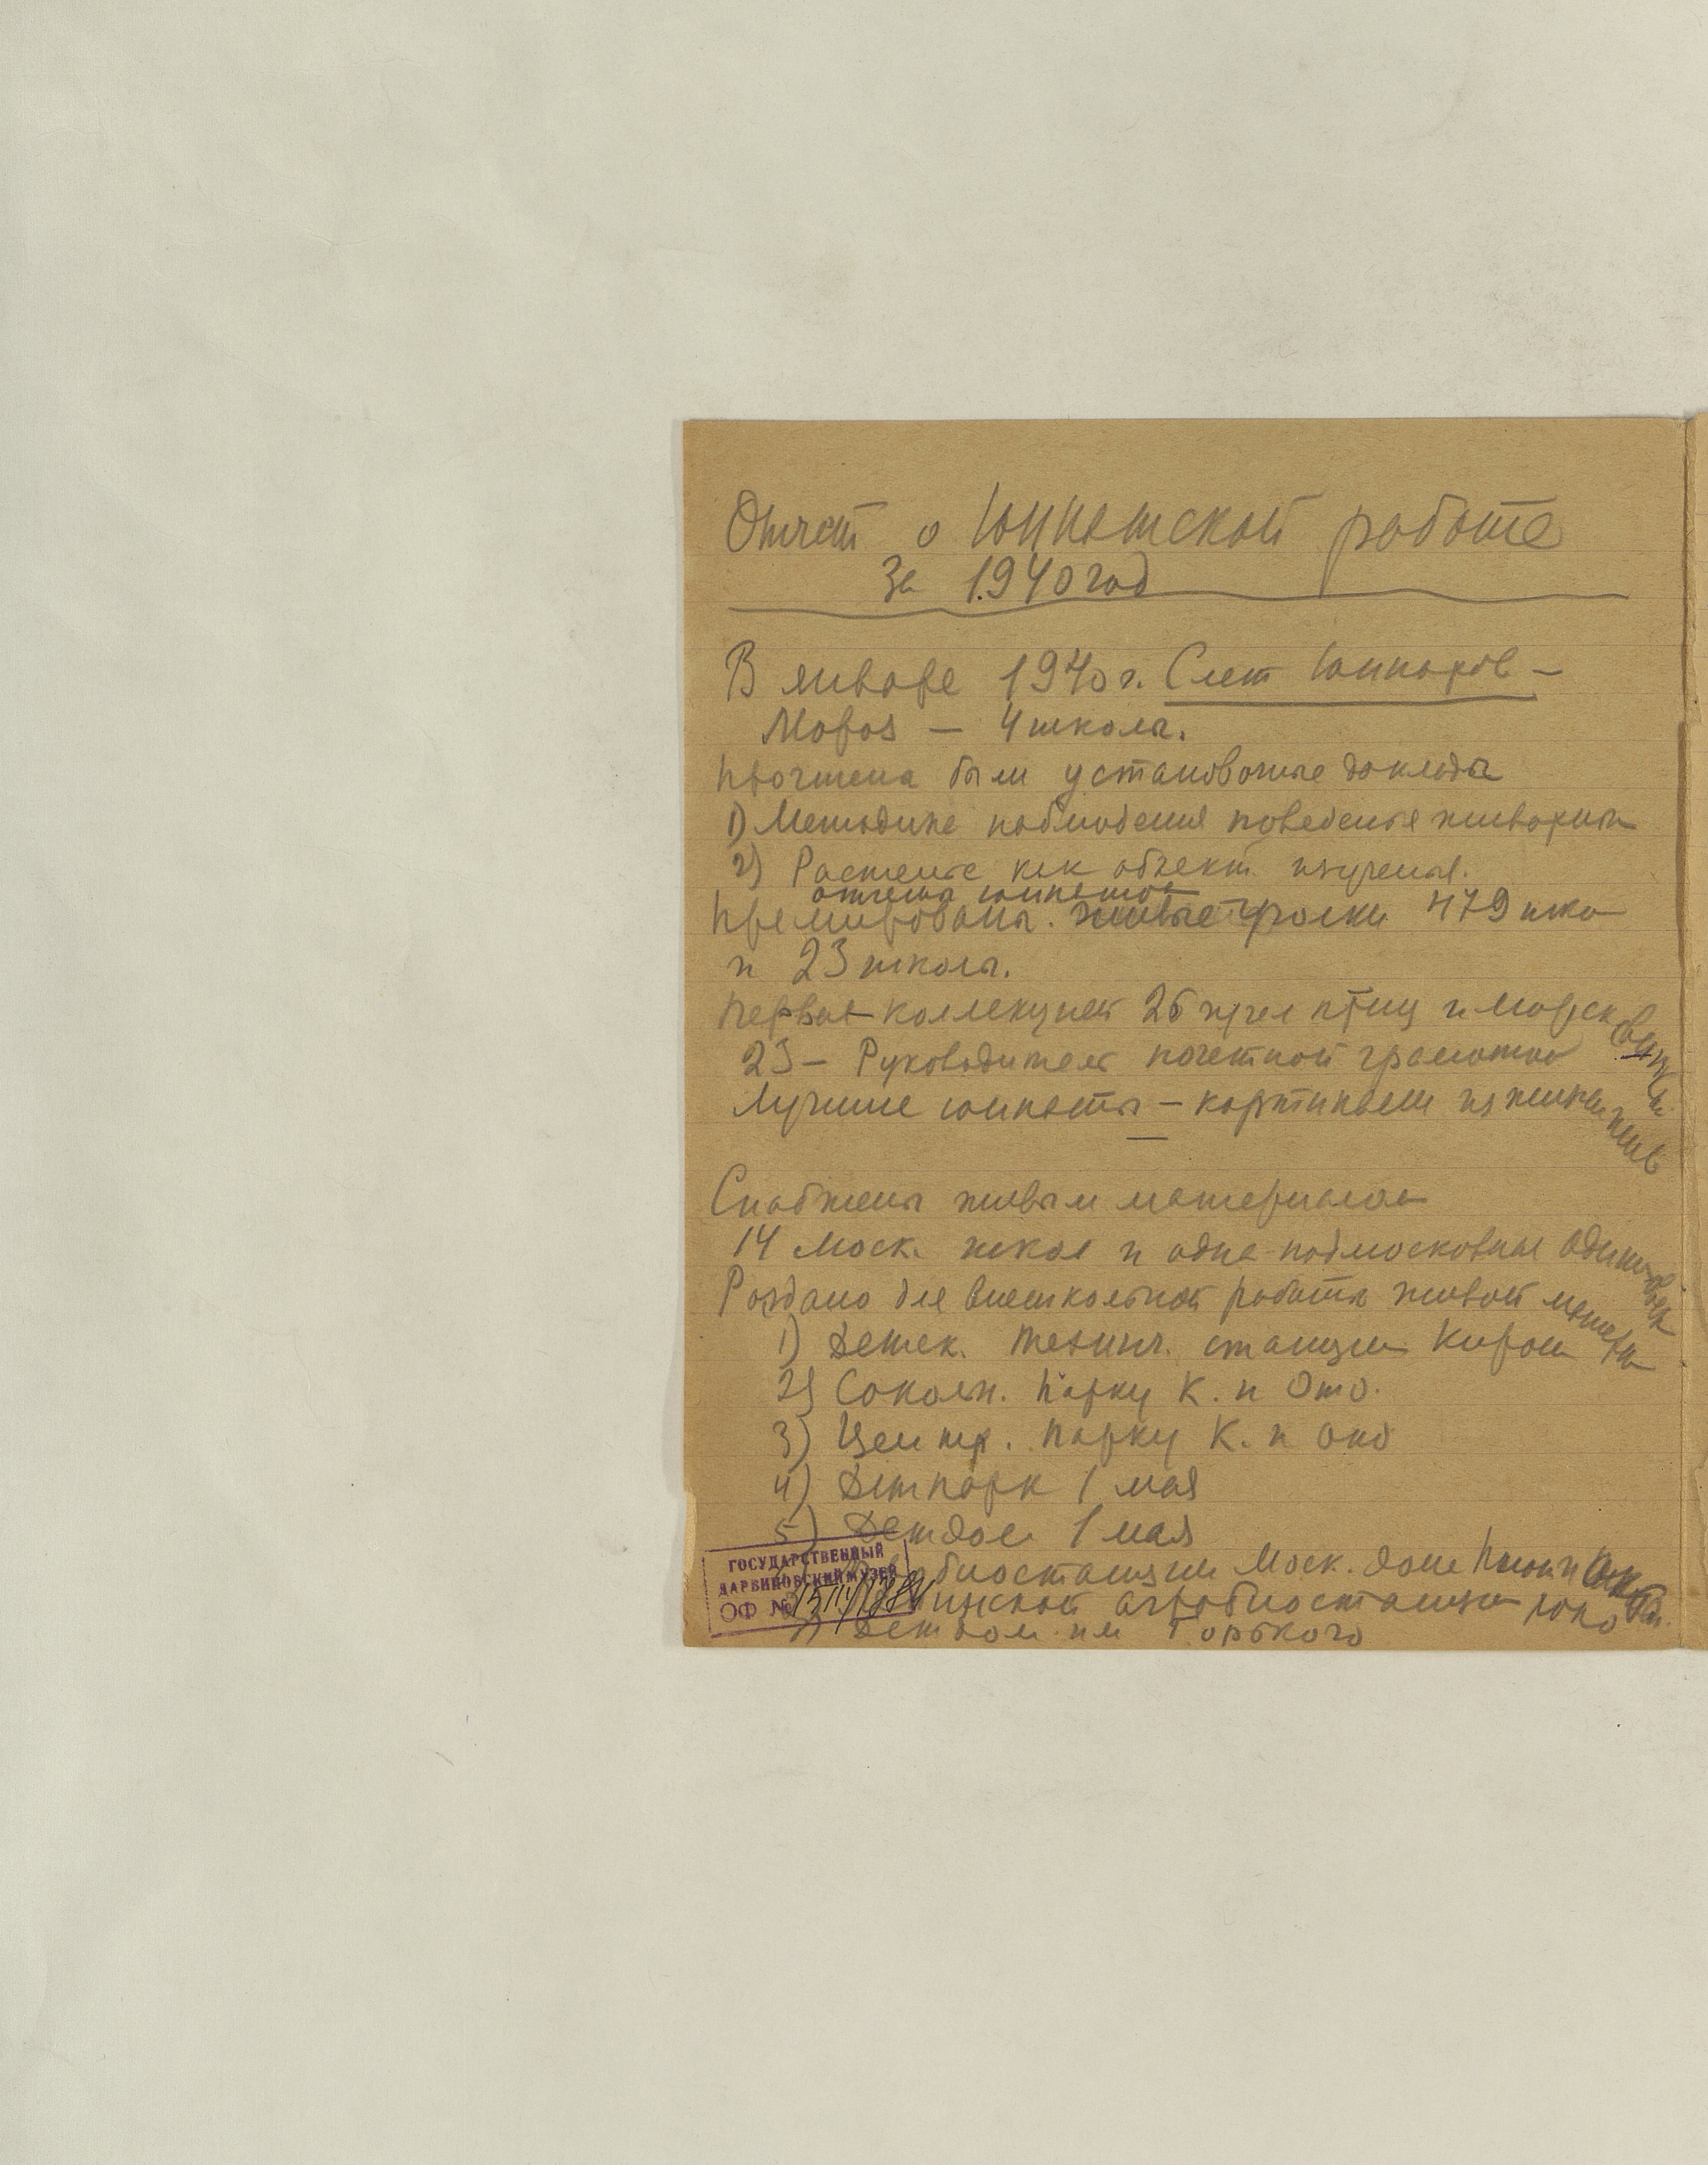 Отчет о Юннатской работе
за 1940 год
В январе 1940 г. Слет Юннатов —
— 4 школы.
прочтены были установочные доклады
1) Методике наблюдения поведения животных
2) Растение как объект изучения.
отчеты юннатов
Премированы. живые уголки 479 шко
и 23 школы.
Первая коллекцией 26 птиц и морск свинки
23 — Руководителя почетной грамотой
Лучшие юннаты — картинами из жизни жив
Снабжены живым материалом
14 Моск. школ и одна подмосковная Одинцовск
Роздано для внешкольной работы живой матери
1) Детск. технич. станции Киров
2) Сокольн. парку К. и Отд.
3) Центр. парку К. и Отд
4) Детпарк 1 мая
5) Детдом 1 мая
биостанции Моск. доме Пион и Октябр.
агробиостанции юно
Детдом им Горького
ГОСУДАРСТВЕННЫЙ
ДАРВИНОВСКИЙ МУЗЕЙ
ОФ №